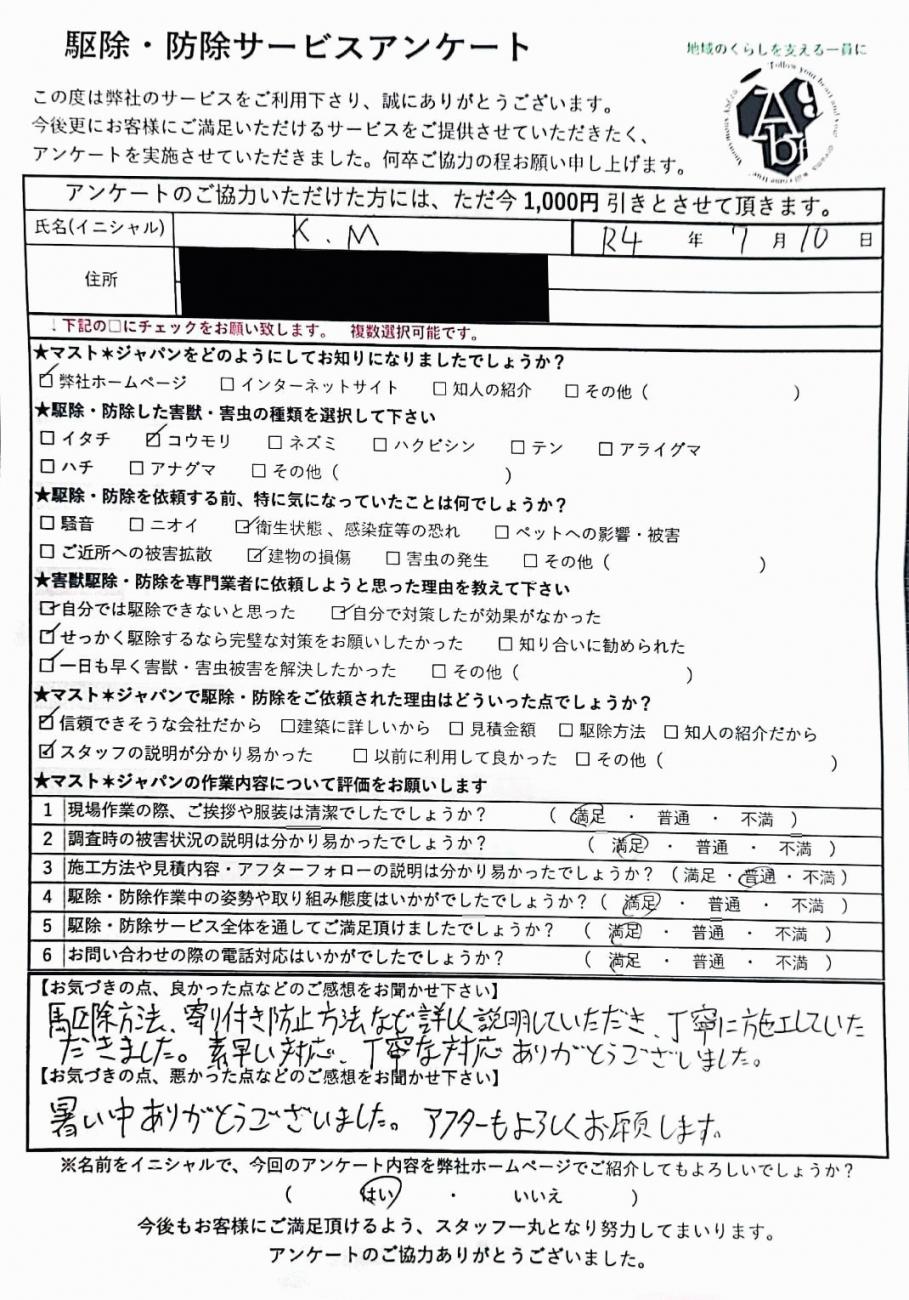 駆除・防除サービスアンケート
地域のくらしを支える一員に
Abf
この度は弊社のサービスをご利用下さり、誠にありがとうございます。
今後更にお客様にご満足いただけるサービスをご提供させていただきたく、
アンケートを実施させていただきました。何卒ご協力の程お願い申し上げます。
アンケートのご協力いただけた方には、ただ今1,000円引きとさせて頂きます。
氏名(イニシャル) K.M R4 年 7 月 10 日
住所
↓下記の□にチェックをお願い致します。 複数選択可能です。
★マスト＊ジャパンをどのようにしてお知りになりましたでしょうか？
☑弊社ホームページ □インターネットサイト □知人の紹介 □その他（ ）
★駆除・防除した害獣・害虫の種類を選択して下さい
□イタチ ☑コウモリ □ネズミ □ハクビシン □テン □アライグマ
□ハチ □アナグマ □その他（ ）
★駆除・防除を依頼する前、特に気になっていたことは何でしょうか？
□騒音 □ニオイ ☑衛生状態、感染症等の恐れ □ペットへの影響・被害
□ご近所への被害拡散 ☑建物の損傷 □害虫の発生 □その他（ ）
★害獣駆除・防除を専門業者に依頼しようと思った理由を教えて下さい
☑自分では駆除できないと思った ☑自分で対策したが効果がなかった
☑せっかく駆除するなら完璧な対策をお願いしたかった □知り合いに勧められた
☑一日も早く害獣・害虫被害を解決したかった □その他（ ）
★マスト＊ジャパンで駆除・防除をご依頼された理由はどういった点でしょうか？
☑信頼できそうな会社だから □建築に詳しいから □見積金額 □駆除方法 □知人の紹介だから
☑スタッフの説明が分かり易かった □以前に利用して良かった □その他（ ）
★マスト＊ジャパンの作業内容について評価をお願いします
1 現場作業の際、ご挨拶や服装は清潔でしたでしょうか？ （ 満足 ・ 普通 ・ 不満 ）
2 調査時の被害状況の説明は分かり易かったでしょうか？ （ 満足 ・ 普通 ・ 不満 ）
3 施工方法や見積内容・アフターフォローの説明は分かり易かったでしょうか？（満足・普通・不満）
4 駆除・防除作業中の姿勢や取り組み態度はいかがでしたでしょうか？（ 満足 ・ 普通 ・ 不満 ）
5 駆除・防除サービス全体を通してご満足頂けましたでしょうか？ （ 満足 ・ 普通 ・ 不満 ）
6 お問い合わせの際の電話対応はいかがでしたでしょうか？ （ 満足 ・ 普通 ・ 不満 ）
【お気づきの点、良かった点などのご感想をお聞かせ下さい】
駆除方法、寄り付き防止方法など詳しく説明していただき、丁寧に施工していた
だきました。素早い対応、丁寧な対応ありがとうございました。
【お気づきの点、悪かった点などのご感想をお聞かせ下さい】
暑い中ありがとうございました。アフターもよろしくお願します。
※名前をイニシャルで、今回のアンケート内容を弊社ホームページでご紹介してもよろしいでしょうか？
（ はい ・ いいえ ）
今後もお客様にご満足頂けるよう、スタッフ一丸となり努力してまいります。
アンケートのご協力ありがとうございました。